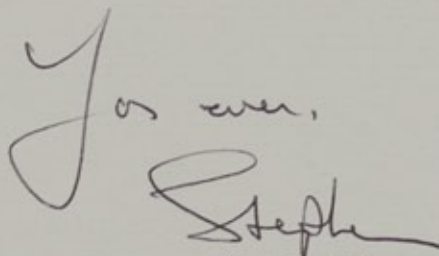 Yos ever,
Stephen